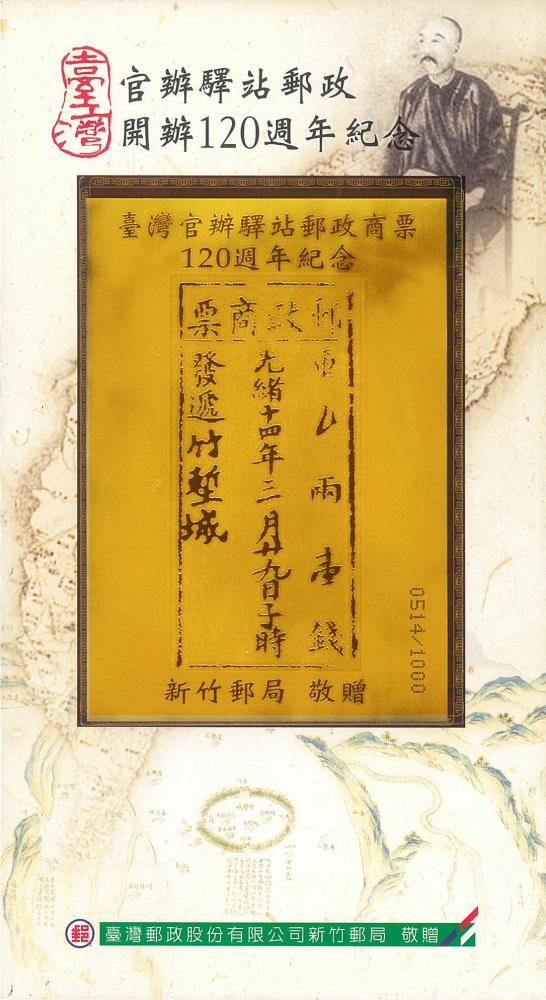 臺灣
官辦驛站郵政
開辦120週年紀念
臺灣官辦驛站郵政商票
120週年紀念
郵政商票
重乙兩壹錢
光緒十四年三月廿九日子時
發遞竹塹城
0514/1000
新竹郵局 敬贈
郵
臺灣郵政股份有限公司新竹郵局 敬贈